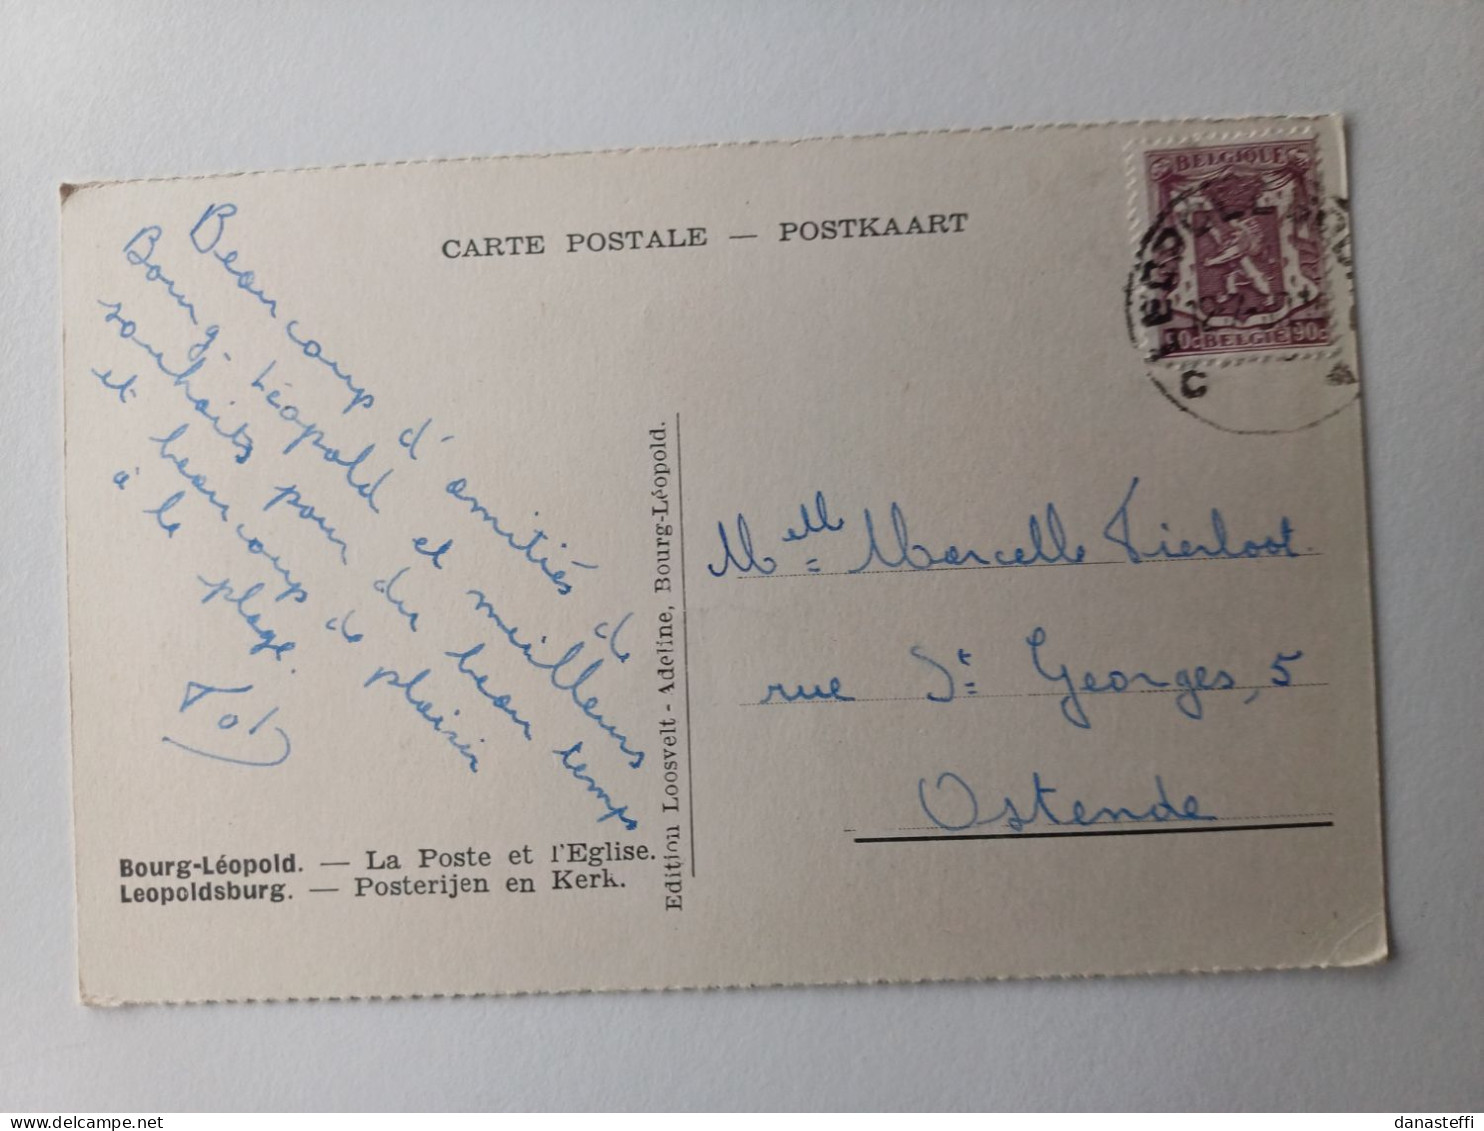 CARTE POSTALE — POSTKAART
BELGIQUE
BELGIË 90c
C
Beaucoup d'amitiés de
Bourg-Léopold et meilleurs
souhaits pour du beau temps
et beaucoup de plaisir
à la plage.
Edition Loosvelt - Adeline, Bourg-Léopold.
Melle Marcelle Tierloot
rue St Georges, 5
Ostende
Bourg-Léopold. — La Poste et l'Eglise.
Leopoldsburg. — Posterijen en Kerk.
danasteffi